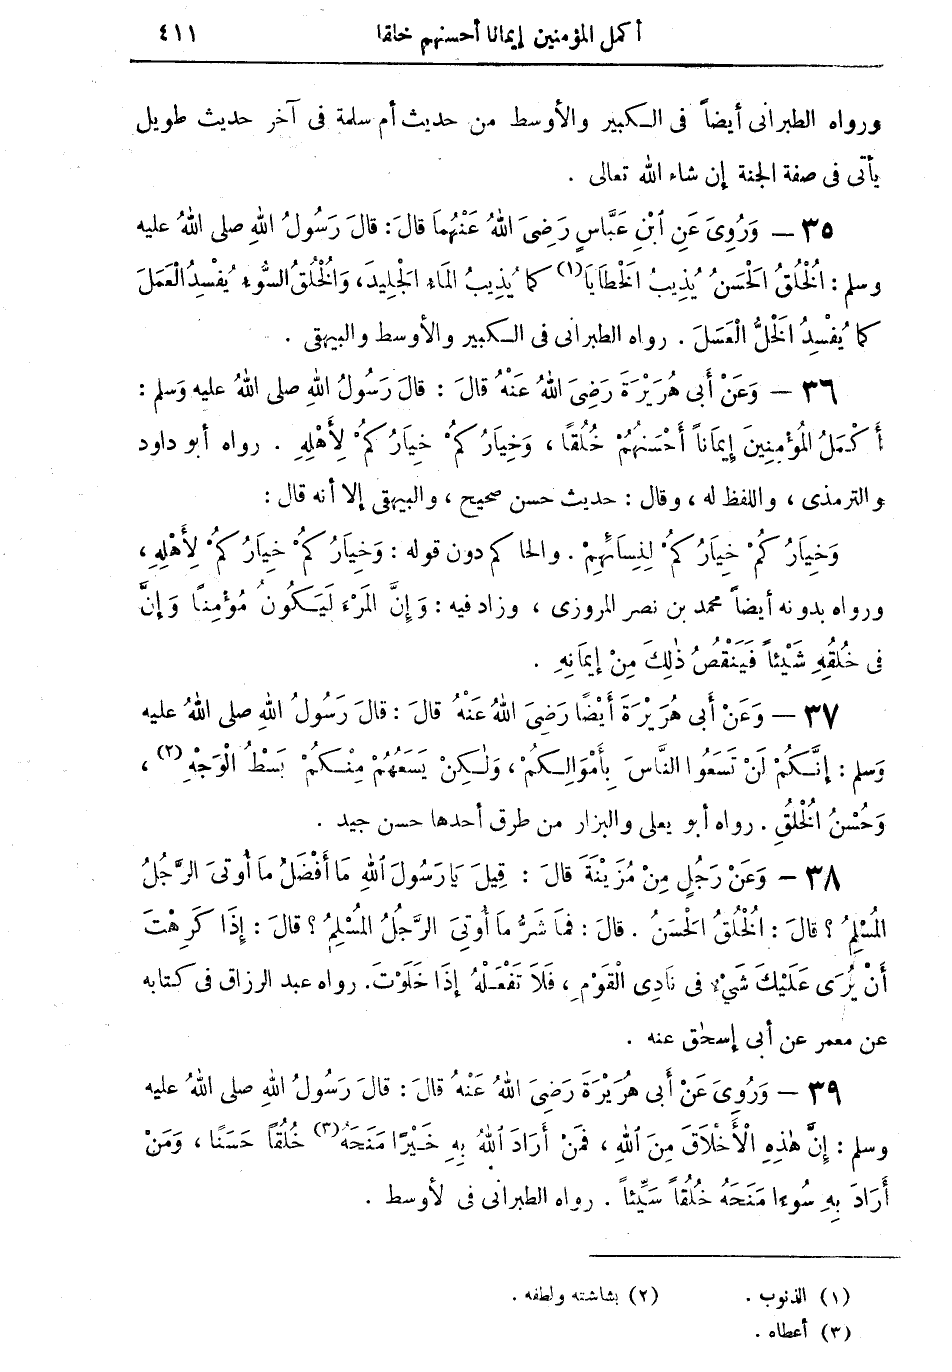 أكمل المؤمنين إيمانا أحسنهم خلقا ٤١١
ورواه الطبرانى أيضاً فى الكبير والأوسط من حديث أم سلمة فى آخر حديث طويل
يأتى فى صفة الجنة إن شاء الله تعالى .
٣٥ — وَرُوِىَ عَنِ ٱبْنِ عَبَّاسٍ رَضِىَ اللهُ عَنْهُمَا قالَ : قالَ رَسُولُ اللهِ صلى اللهُ عليه
وسلم : الُخْلُقُ الَحْسَنُ يُذِيبُ الَخْطَايَا(١) كما يُذِيبُ المَاء الَجْلِيدَ ، وَالُخْلُقُ السُّوء يُفْسِدُ الْعَمَلَ
كما يُفْسِدُ الَخْلُّ الْعَسَلَ . رواه الطبرانى فى الكبير والأوسط والبيهقى .
٣٦ — وَعَنْ أَبِى هُرَيْرَةَ رَضِىَ اللهُ عَنْهُ قالَ : قالَ رَسُولُ اللهِ صلى اللهُ عليه وَسلم :
أَكْمَلُ المُؤْمِنِينَ إِيمَاناً أَحْسَنُهُمْ خُلُقاً ، وَخِيَارُكُمْ خِيَارُكُمْ لِأَهْلِهِ . رواه أبو داود
والترمذى ، واللفظ له ، وقال : حديث حسن صحيح ، والبيهقى إلا أنه قال :
وَخِيَارُكُمْ خِيَارُكُمْ لِنِسَائِهِمْ . والحاكم دون قوله : وَخِيَارُكُمْ خِيَارُكُمْ لِأَهْلِهِ ،
ورواه بدونه أيضاً محمد بن نصر المروزى ، وزاد فيه : وَإِنَّ المَرْءَ لَيَكُونُ مُؤْمِنًا وَإِنَّ
فى خُلُقِهِ شَيْئاً فَيَنْقُصُ ذٰلِكَ مِنْ إِيمَانِهِ .
٣٧ — وَعَنْ أَبى هُرَيْرَةَ أَيْضًا رَضِىَ اللهُ عَنْهُ قالَ : قالَ رَسُولُ اللهِ صلى اللهُ عليه
وَسلم : إِنَّكُمْ لَنْ تَسَعُوا النَّاسَ بِأَمْوَالِكُمْ ، وَلٰكِنْ يَسَعُهُمْ مِنْكُمْ بَسْطُ الْوَجْهِ(٢) ،
وَحُسْنُ الُخْلُقِ . رواه أبو يعلى والبزار من طرق أحدها حسن جيد .
٣٨ — وَعَنْ رَجُلٍ مِنْ مُزَيْنَةَ قالَ : قِيلَ يَا رَسُولَ اللهِ مَا أَفْضَلُ ما أُوتِىَ الرَّجُلُ
المُسْلِمُ ؟ قالَ : الُخْلُقُ الَحْسَنُ . قالَ : فمَا شَرُّ ما أُوتِىَ الرَّجُلُ المُسْلِمُ ؟ قالَ : إِذَا كَرِهْتَ
أَنْ يُرَى عَلَيْكَ شَيْء فى نَادِى الْقَوْمِ ، فَلاَ تَفْعَلْهُ إِذَا خَلَوْتَ . رواه عبد الرزاق فى كتابه
عن معمر عن أبى إسحٰق عنه .
٣٩ — وَرُوِىَ عَنْ أَبى هُرَيْرَةَ رَضِىَ اللهُ عَنْهُ قالَ : قالَ رَسُولُ اللهِ صلى اللهُ عليه
وسلم : إِنَّ هٰذِهِ الْأَخْلَاقَ مِنَ اللهِ ، فَمَنْ أَرَادَ اللهُ بِهِ خَيْرًا مَنَحَهُ(٣) خُلُقاً حَسَنًا ، وَمَنْ
أَرَادَ بِهِ سُوءا مَنَحَهُ خُلُقاً سَيِّئاً . رواه الطبرانى فى لأوسط .
(١) الذنوب . (٢) بشاشته ولطفه .
(٣) أعطاه .